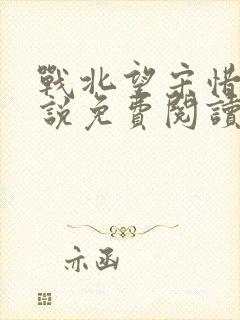 戰北望宋惜
說免費閱讀
亦函